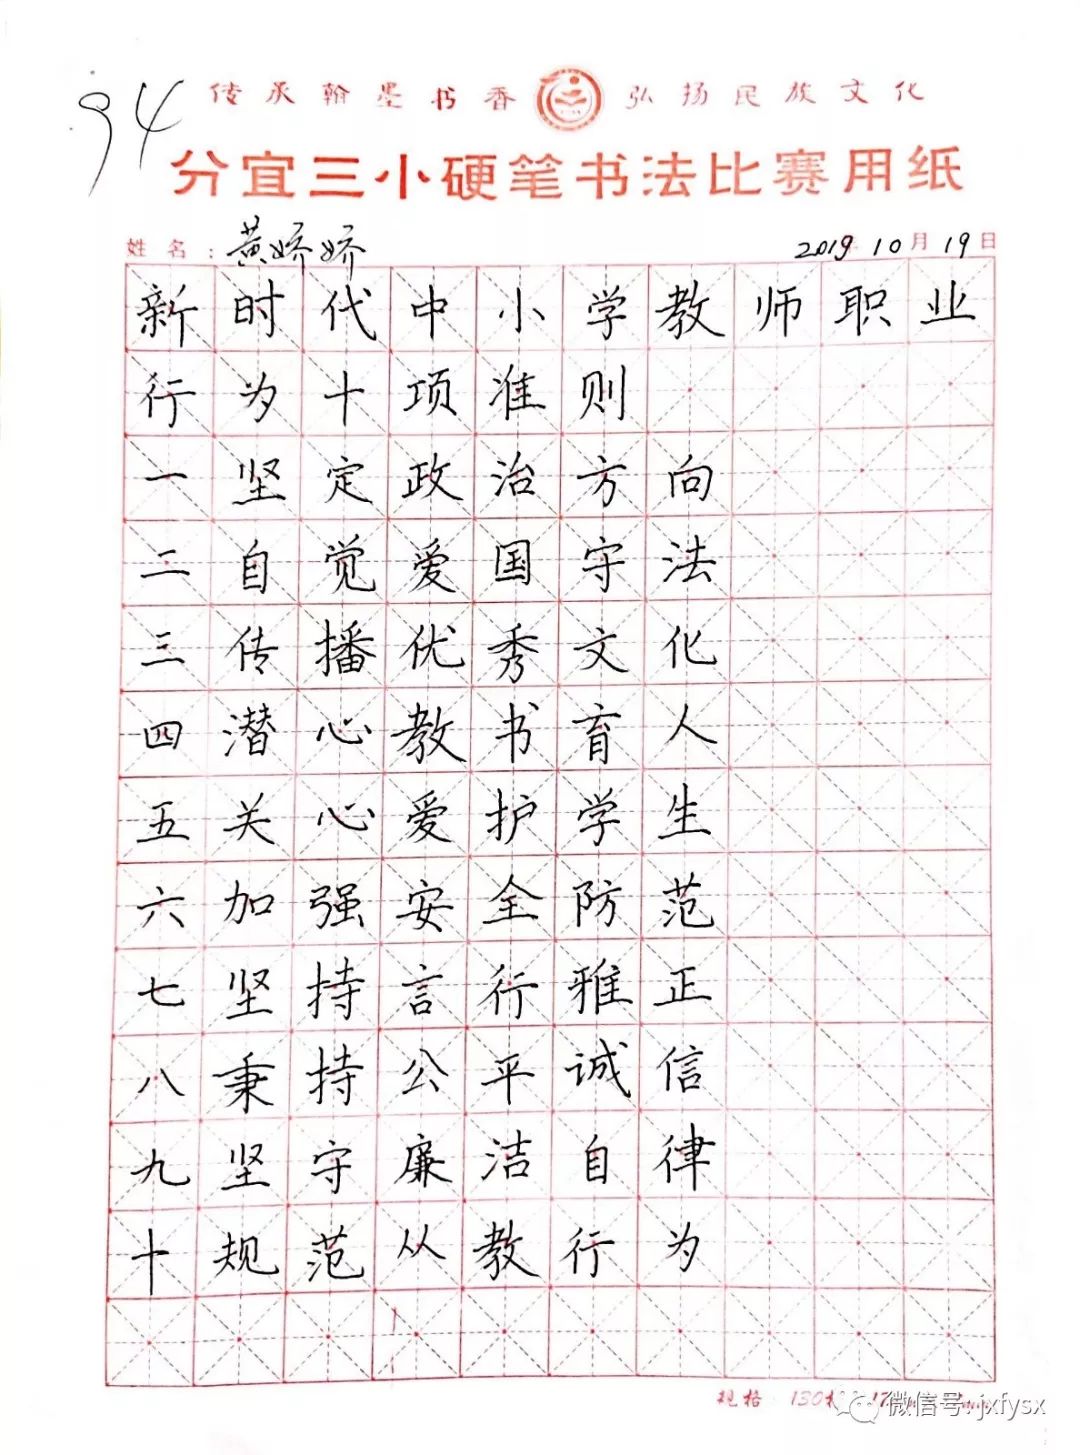 94
传承翰墨书香 弘扬民族文化
分宜三小硬笔书法比赛用纸
姓名：黄娇娇 2019年10月19日
新时代中小学教师职业
行为十项准则
一坚定政治方向
二自觉爱国守法
三传播优秀文化
四潜心教书育人
五关心爱护学生
六加强安全防范
七坚持言行雅正
八秉持公平诚信
九坚守廉洁自律
十规范从教行为
规格：130格
微信号: jxfysx